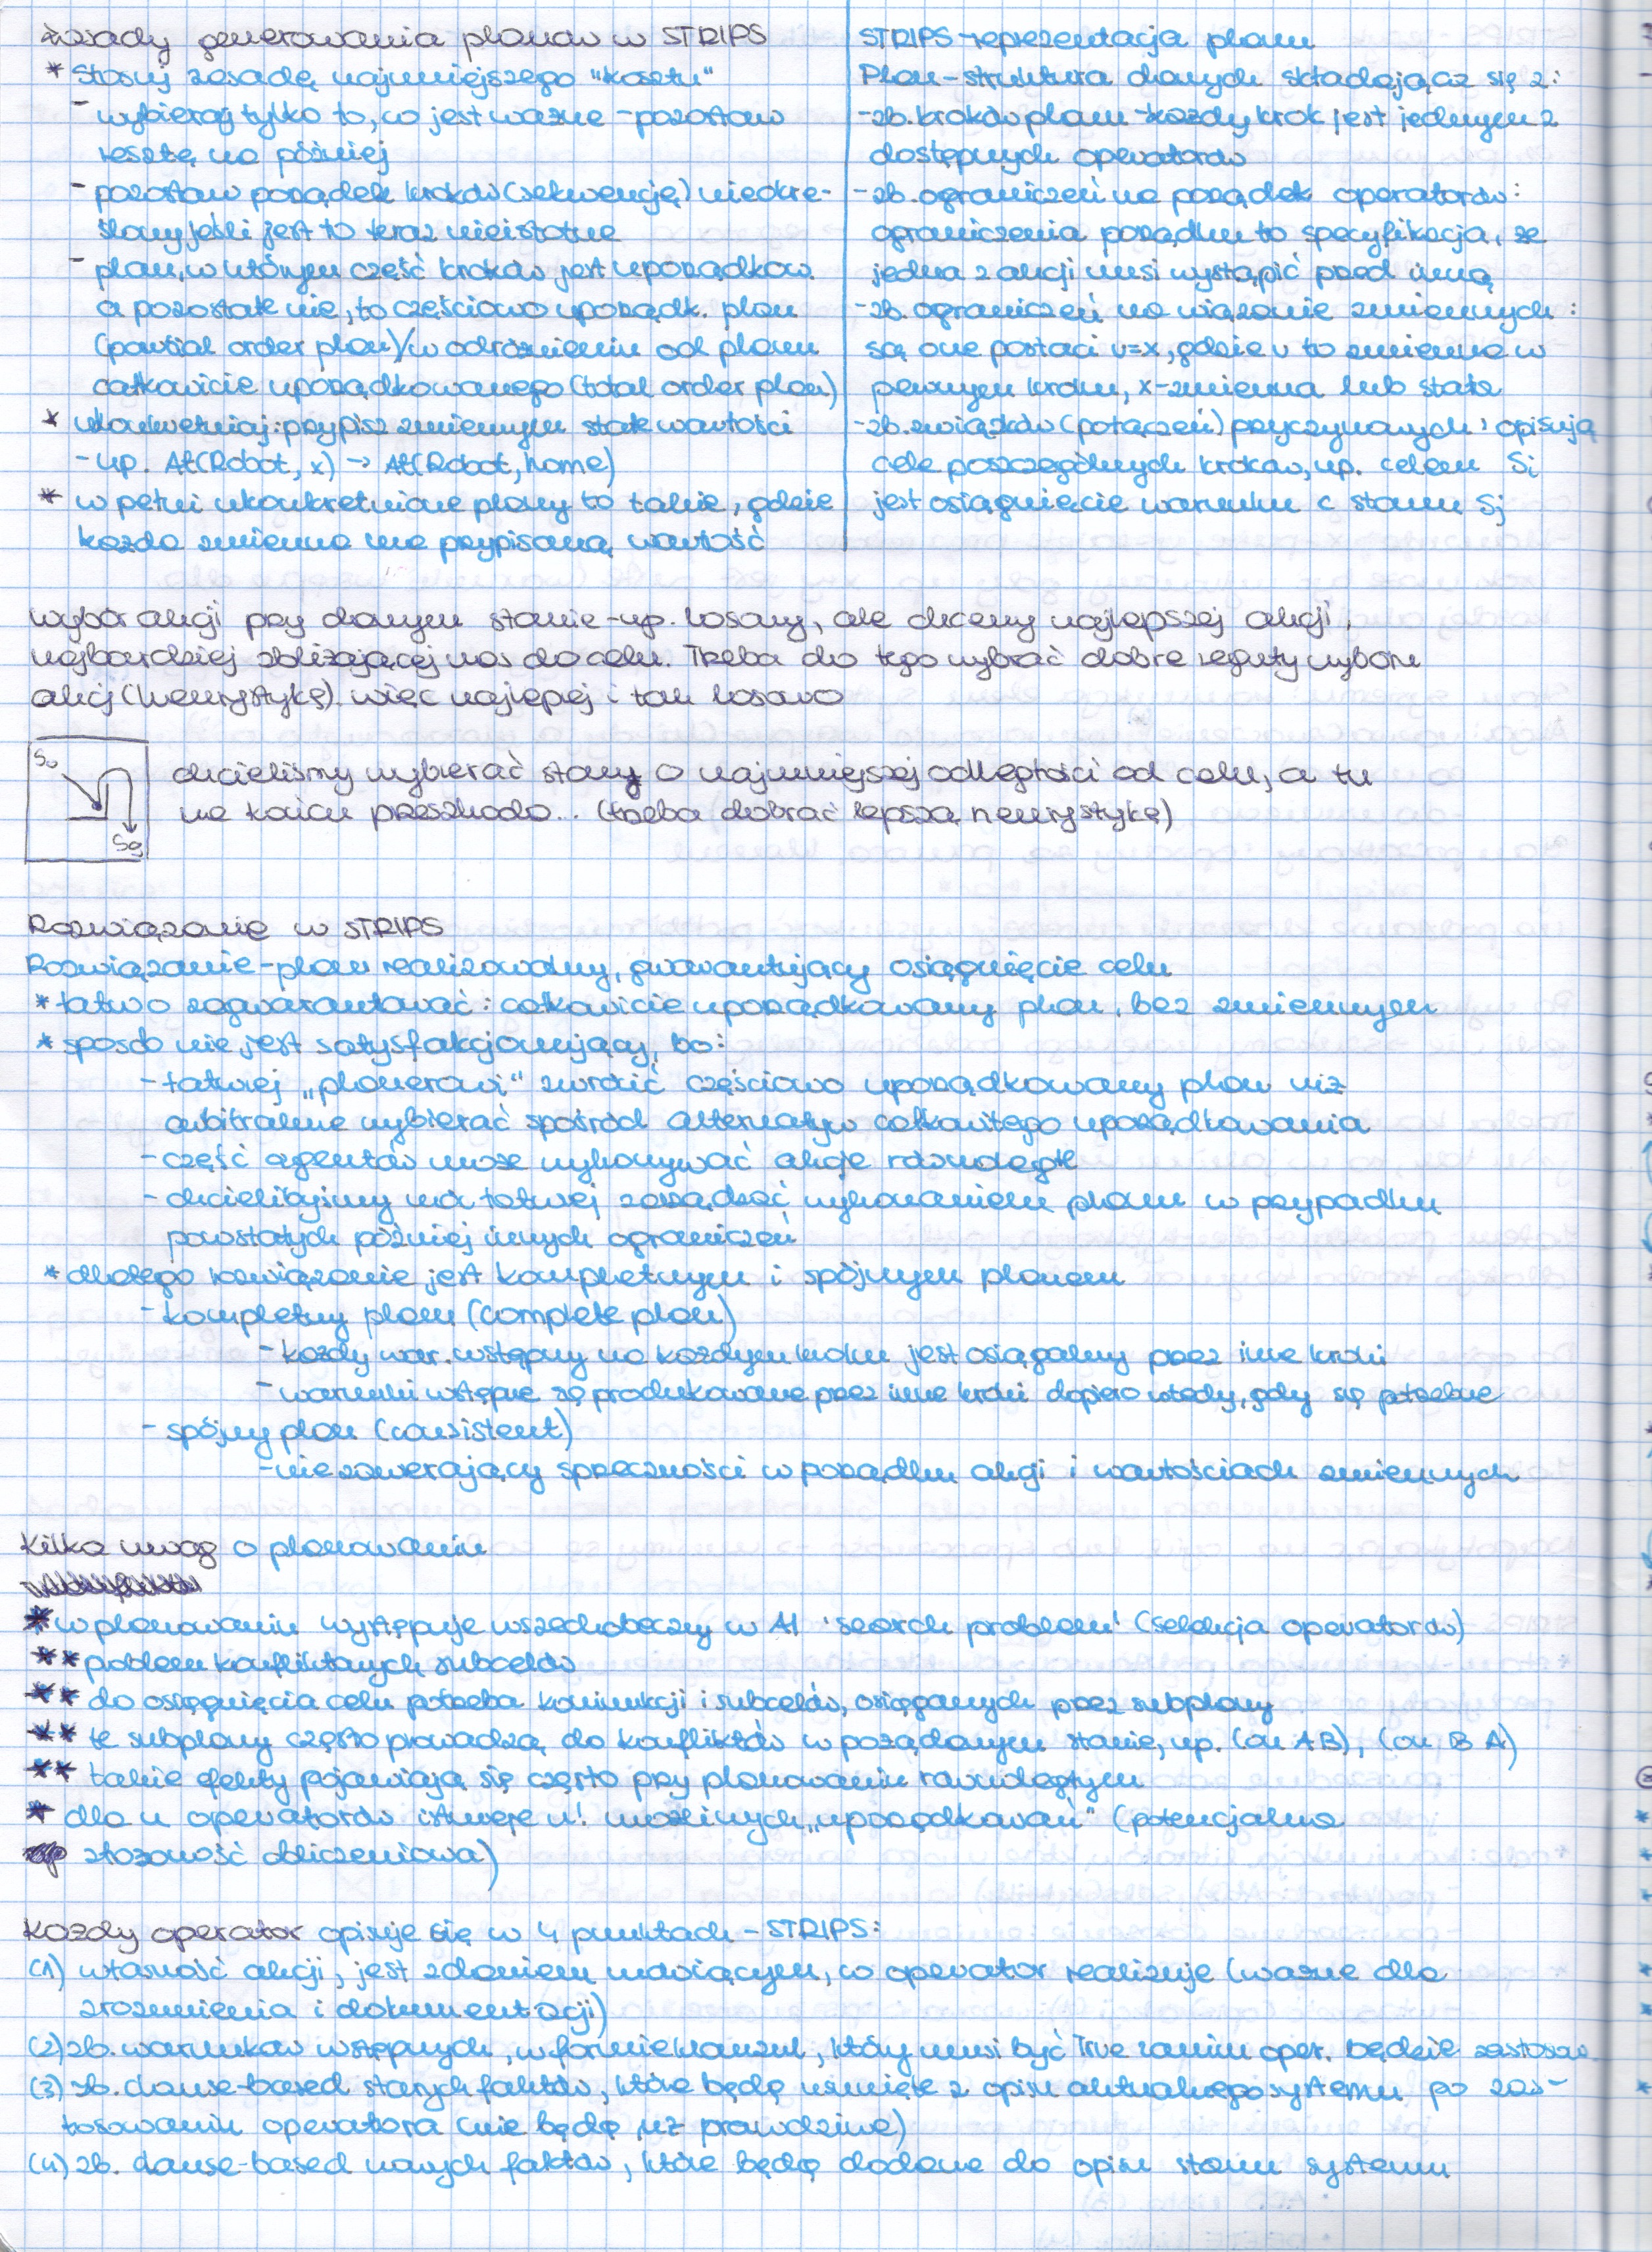 Zasady generowania planów w STRIPS
* Stosuj zasadę najmniejszego "kosztu"
- wybieraj tylko to, co jest ważne - pozostaw
resztę na później
- pozostaw porządek kroków (sekwencję) nieokre-
ślony jeśli jest to teraz nieistotne
- plan, w którym część kroków jest uporządkow.
a pozostałe nie, to częściowo uporządk. plan
(partial order plan)/w odróżnieniu od planu
całkowicie uporządkowanego (total order plan)
* ukonkretniaj: przypisz zmiennym stałe wartości
- np. At(Robot, x) → At(Robot, home)
* w pełni ukonkretnione plany to takie, gdzie
każda zmienna ma przypisaną wartość
STRIPS - reprezentacja planu
Plan - struktura danych składająca się z:
- zb. kroków planu - każdy krok jest jednym z
dostępnych operatorów
- zb. ograniczeń na porządek operatorów:
ograniczenia porządku to specyfikacja, że
jedna z akcji musi wystąpić przed inną
- zb. ograniczeń na wiązanie zmiennych:
są one postaci v=x, gdzie v to zmienna w
pewnym kroku, x-zmienna lub stała
- zb. związków (połączeń) przyczynowych: opisują
cele poszczególnych kroków, np. celem Si
jest osiągnięcie warunku c stanu Sj
wybór akcji przy danym stanie - np. losowy, ale chcemy najlepszej akcji,
najbardziej zbliżającej nas do celu. Trzeba do tego wybrać dobre reguły wyboru
akcji (heurystykę). więc najlepiej i tak losowo
S0
Sg
chcieliśmy wybierać stany o najmniejszej odległości od celu, a tu
na końcu przeszkoda... (trzeba dobrać lepszą heurystykę)
Rozwiązanie w STRIPS
Rozwiązanie - plan realizowalny, gwarantujący osiągnięcie celu
* łatwo zagwarantować: całkowicie uporządkowany plan, bez zmiennych
* sposób nie jest satysfakcjonujący, bo:
- łatwiej „planerowi" zwrócić częściowo uporządkowany plan niż
arbitralne wybierać spośród alternatyw całkowitego uporządkowania
- część agentów może wykonywać akcje równoległe
- chcielibyśmy móc łatwiej zarządzać wykonaniem planu w przypadku
powstałych później innych ograniczeń
* dlatego rozwiązanie jest kompletnym i spójnym planem
- kompletny plan (complete plan)
- każdy war. wstępny na każdym kroku jest osiągalny przez inne kroki
- warunki wstępne są produkowane przez inne kroki dopiero wtedy, gdy są potrzebne
- spójny plan (consistent)
- nie zawierający sprzeczności w porządku akcji i wartościach zmiennych
Kilka uwag o planowaniu
* w planowaniu występuje wszechobecny w AI 'search problem' (selekcja operatorów)
** problem konfliktowych subcelów
** do osiągnięcia celu potrzeba koniunkcji i subcelów, osiąganych przez subplany
** te subplany często prowadzą do konfliktów w pożądanym stanie, np. (on A B), (on B A)
** takie efekty pojawiają się często przy planowaniu równoległym
* dla n operatorów istnieje n! możliwych „uporządkowań" (potencjalna
złożoność obliczeniowa)
Każdy operator opisuje się w 4 punktach - STRIPS:
(1) własność akcji, jest zdaniem mówiącym, co operator realizuje (ważne dla
zrozumienia i dokumentacji)
(2) zb. warunków wstępnych, w formie klauzul, który musi być True zanim oper. będzie zastosow.
(3) zb. clause-based starych faktów, które będą usunięte z opisu aktualnego systemu po zas-
tosowaniu operatora (nie będą już prawdziwe)
(4) zb. clause-based nowych faktów, które będą dodane do opisu stanu systemu